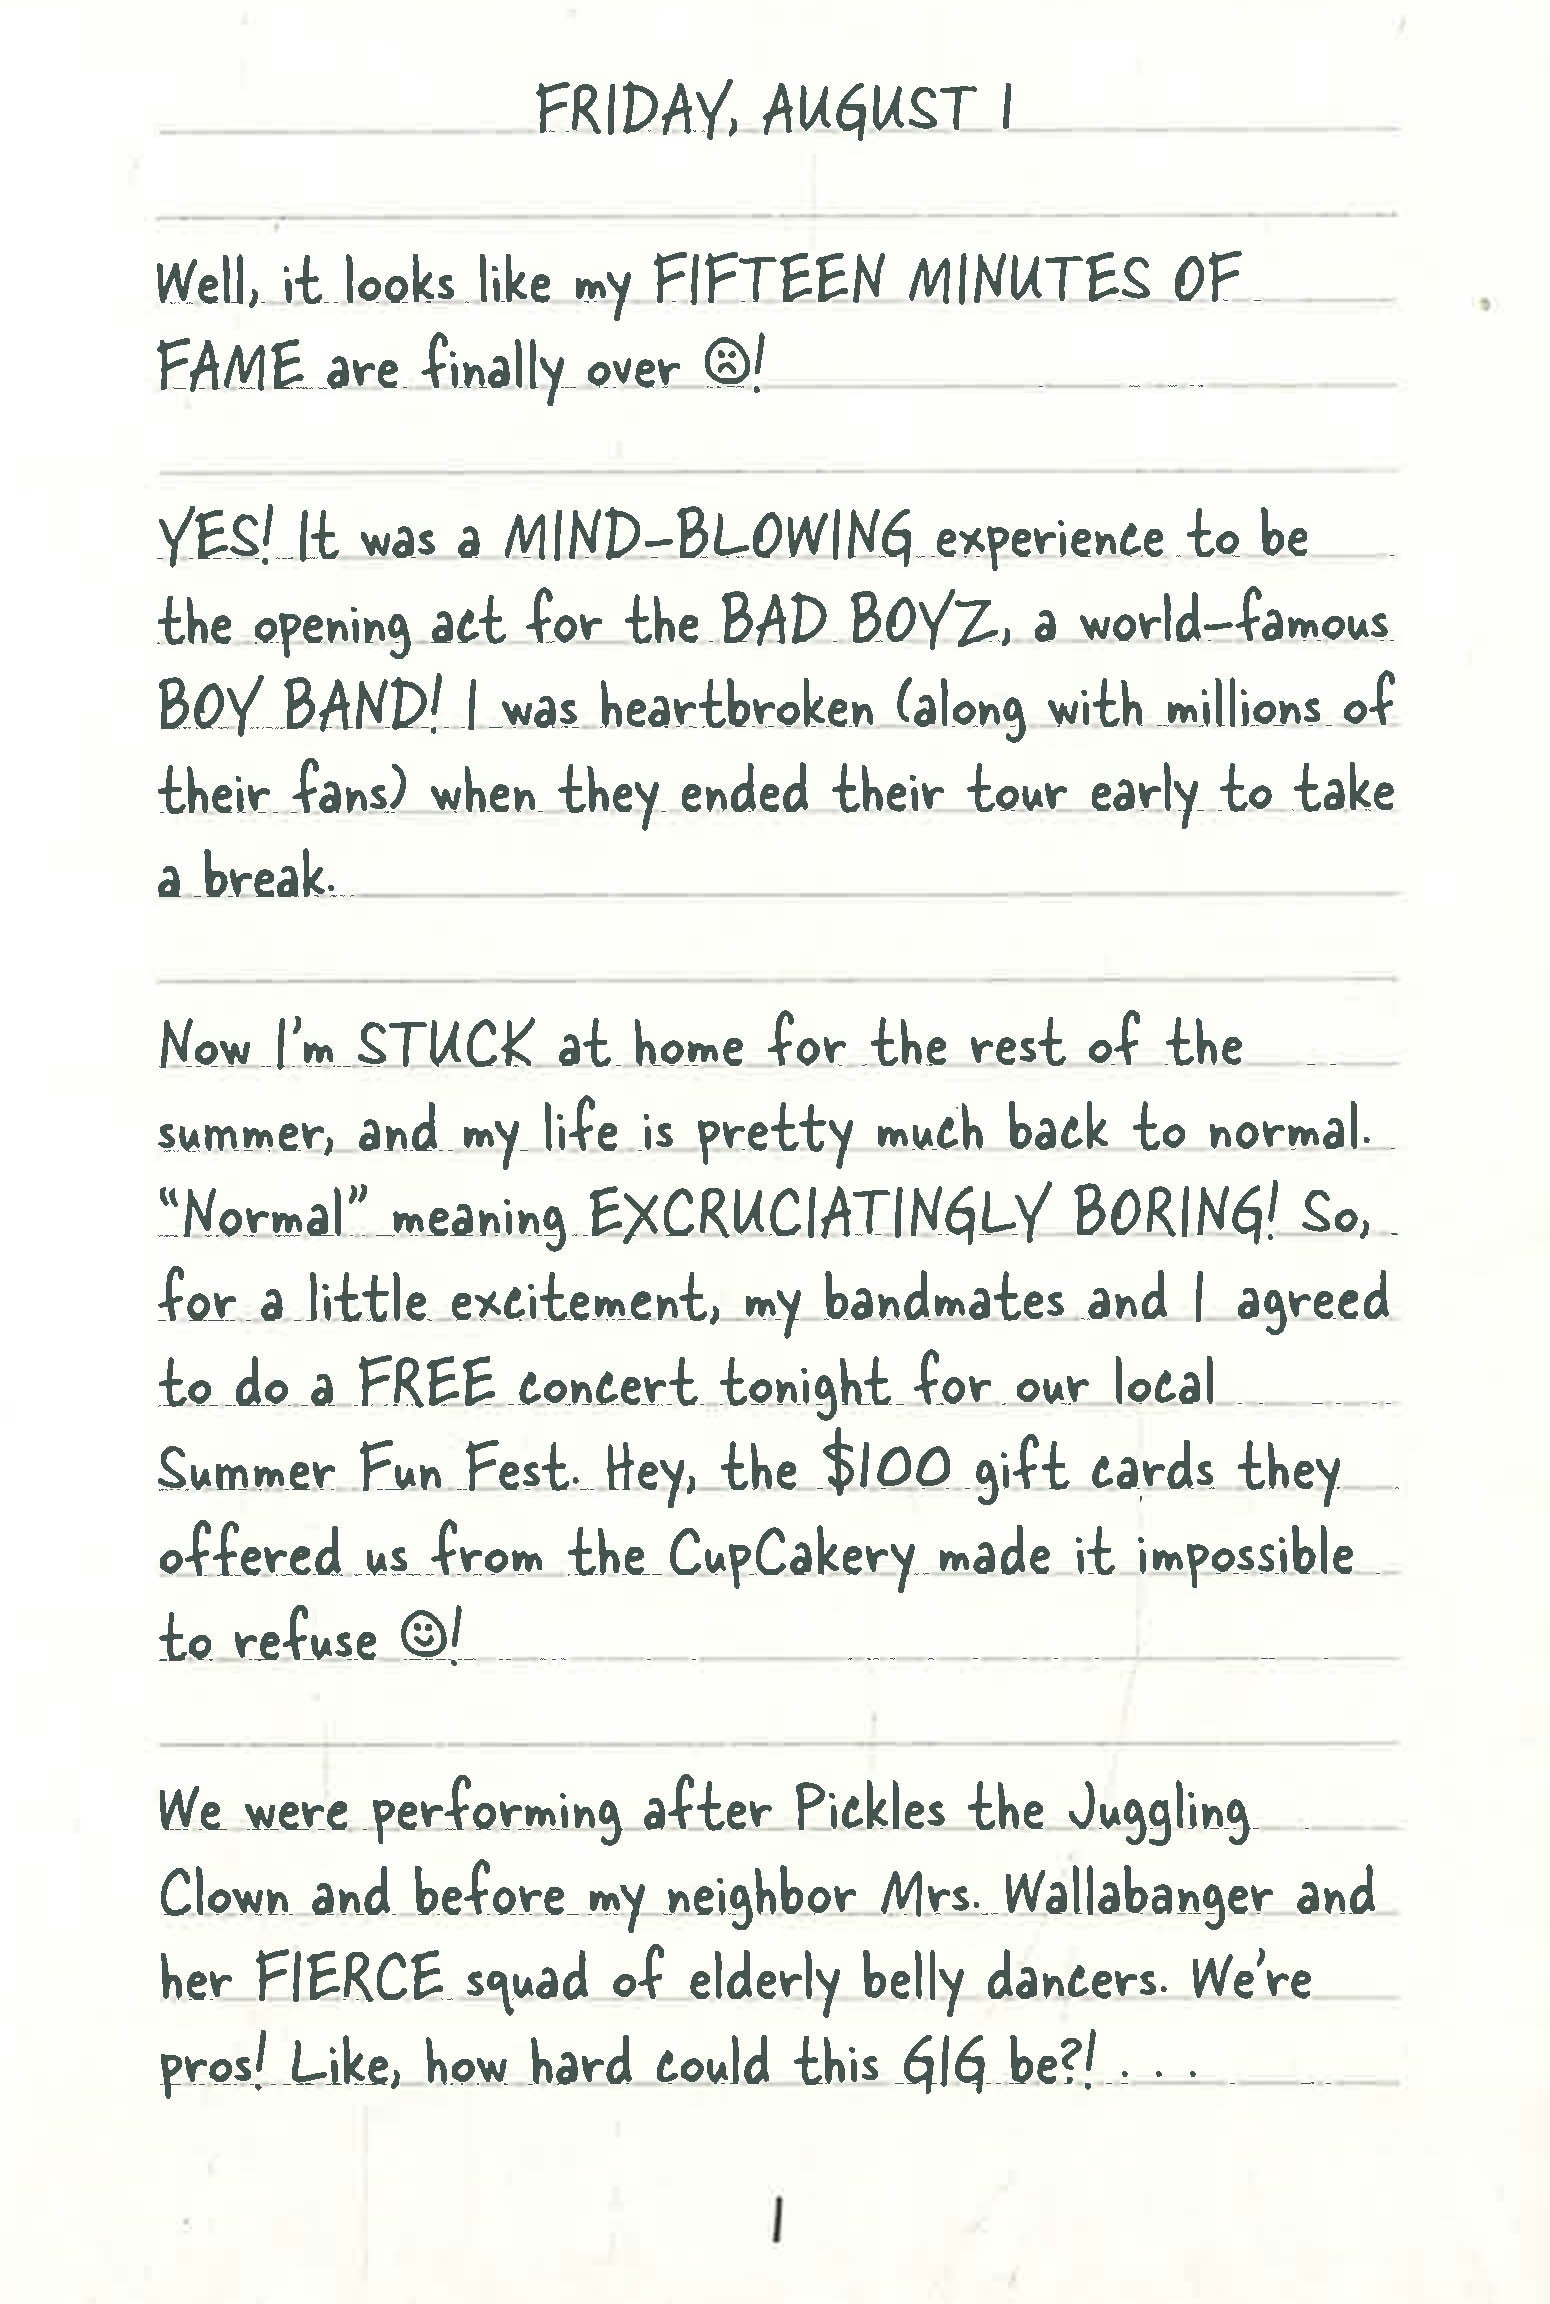 FRIDAY, AUGUST 1
Well, it looks like my FIFTEEN MINUTES OF
FAME are finally over ☹!
YES! It was a MIND-BLOWING experience to be
the opening act for the BAD BOYZ, a world-famous
BOY BAND! I was heartbroken (along with millions of
their fans) when they ended their tour early to take
a break.
Now I'm STUCK at home for the rest of the
summer, and my life is pretty much back to normal.
“Normal” meaning EXCRUCIATINGLY BORING! So,
for a little excitement, my bandmates and I agreed
to do a FREE concert tonight for our local
Summer Fun Fest. Hey, the $100 gift cards they
offered us from the CupCakery made it impossible
to refuse ☺!
We were performing after Pickles the Juggling
Clown and before my neighbor Mrs. Wallabanger and
her FIERCE squad of elderly belly dancers. We're
pros! Like, how hard could this GIG be?! . . .
1